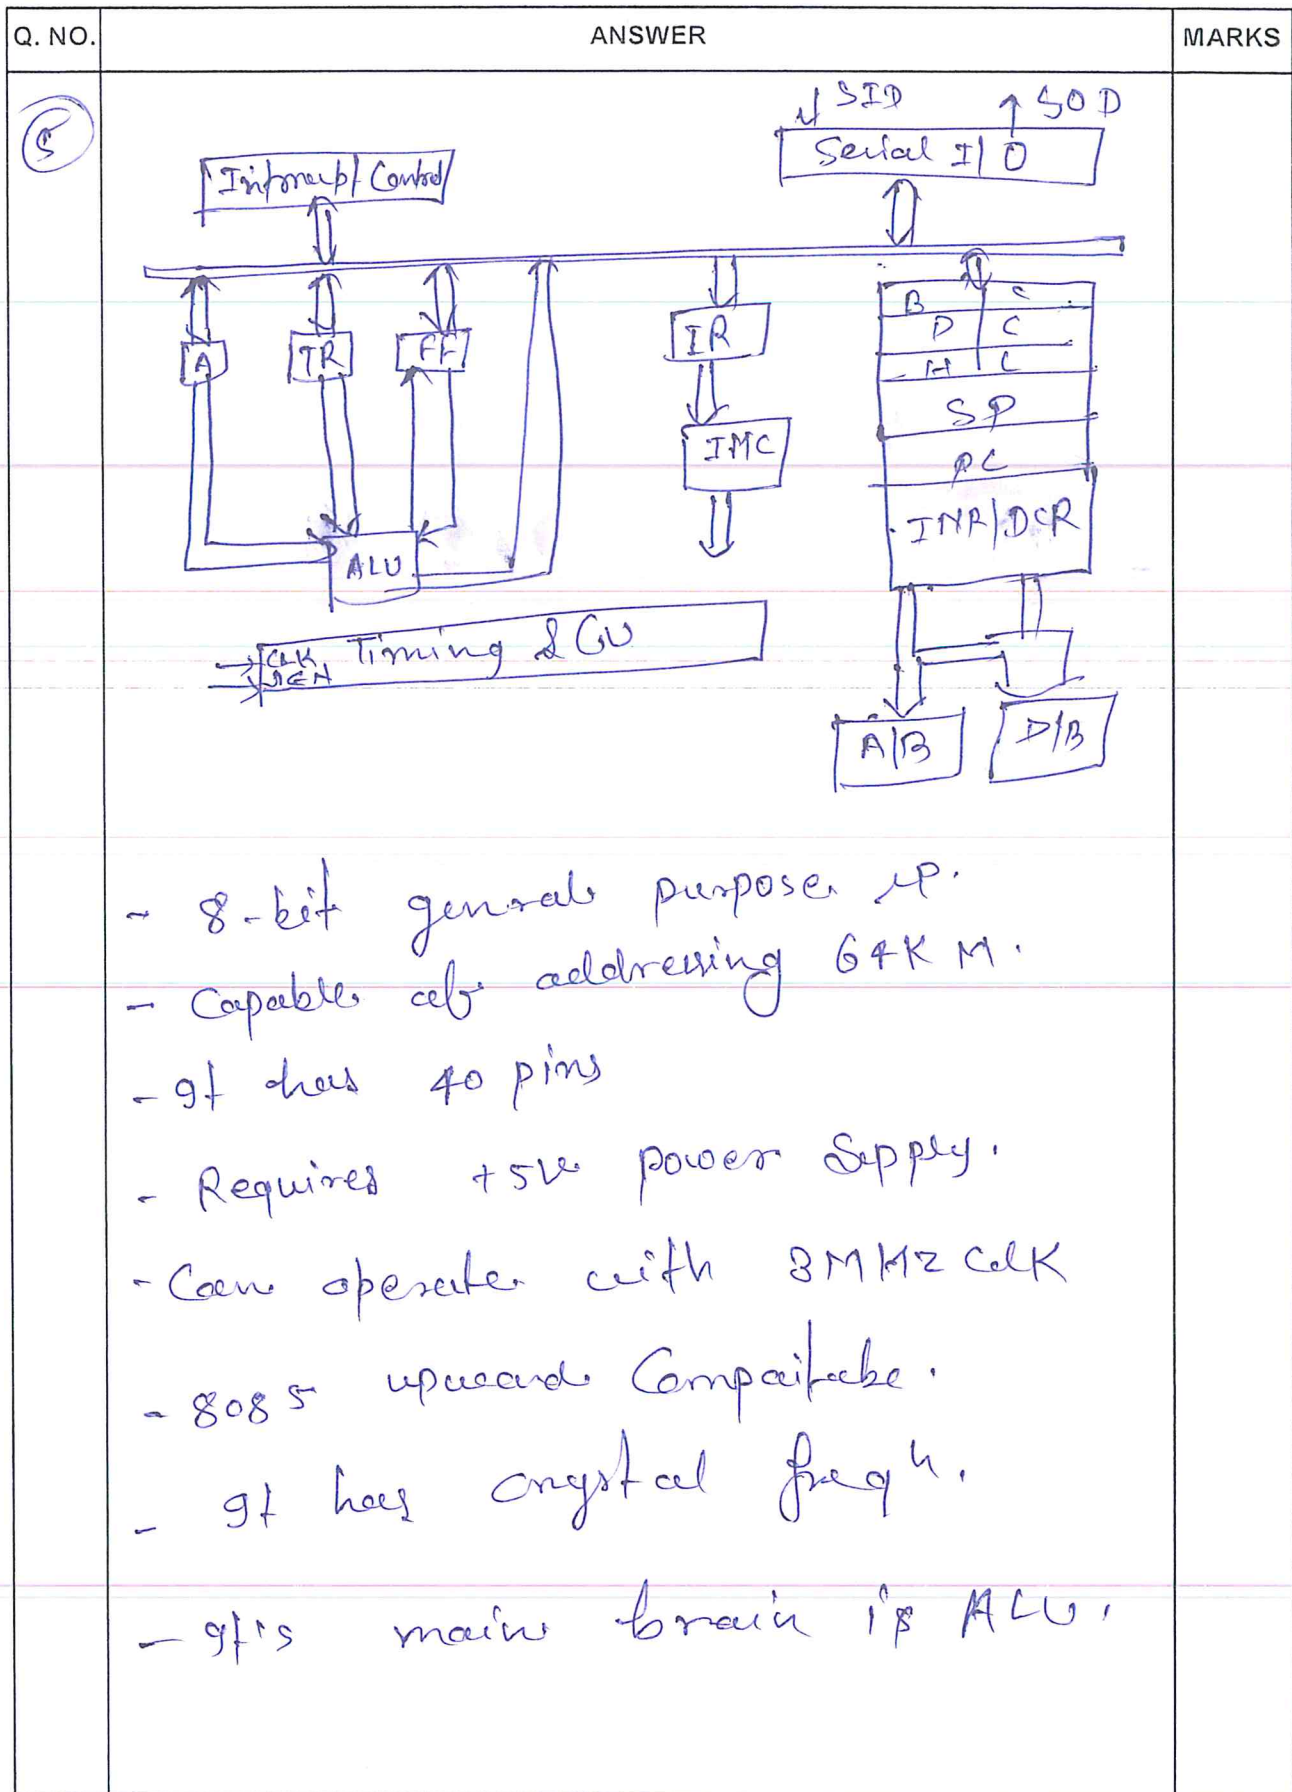 Q. NO. ANSWER MARKS
5
SID SOD
Serial I/O
Interrupt Control
A TR FF IR
B C
D C
H L
SP
IMC
PC
INR/DCR
ALU
CLK Timing & CU
A/B D/B
- 8-bit general purpose μP.
- Capable of addressing 64K M.
- It has 40 pins
- Requires +5V power Supply.
- Can operate with 3MHz CLK
- 8085 upward Compaitabe.
- It has crystal freqn.
- It's main brain is ALU.